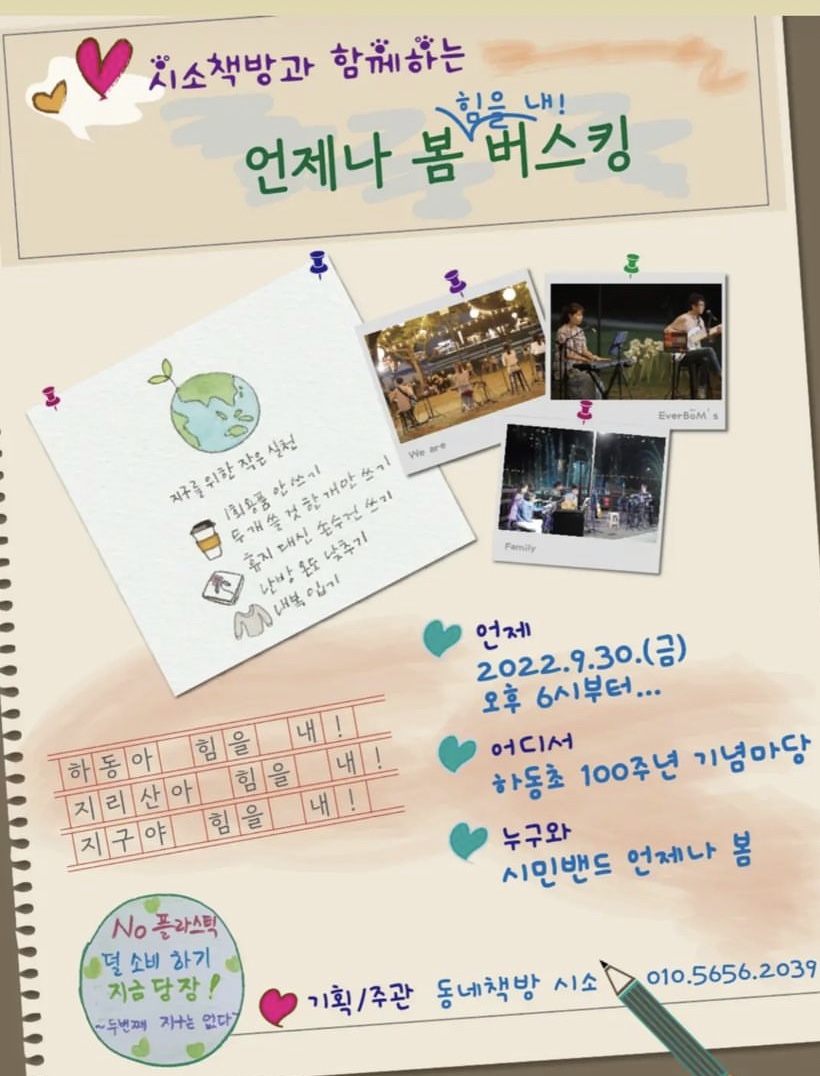 시소책방과 함께하는
힘을 내!
언제나 봄 버스킹
지구를 위한 작은 실천
1회용품 안 쓰기
두 개 쓸 것 한 개만 쓰기
휴지 대신 손수건 쓰기
난방 온도 낮추기
내복 입기
We are
EverBoM's
Family
언제
2022.9.30.(금)
오후 6시부터...
어디서
하동초 100주년 기념마당
누구와
시민밴드 언제나 봄
하동아 힘을 내!
지리산아 힘을 내!
지구야 힘을 내!
No 플라스틱
덜 소비 하기
지금 당장!
~두번째 지구는 없다~
기획/주관 동네책방 시소 010.5656.2039